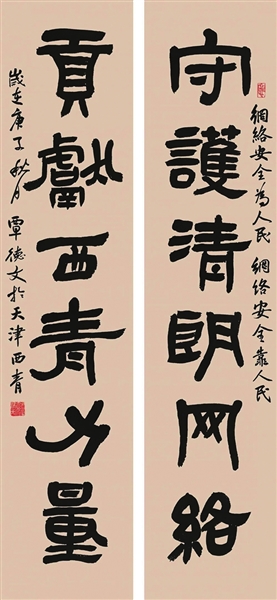 網絡安全為人民 網络安全靠人民
守護清朗网絡
貢獻西青力量
歲在庚子秋月 覃德文於天津西青